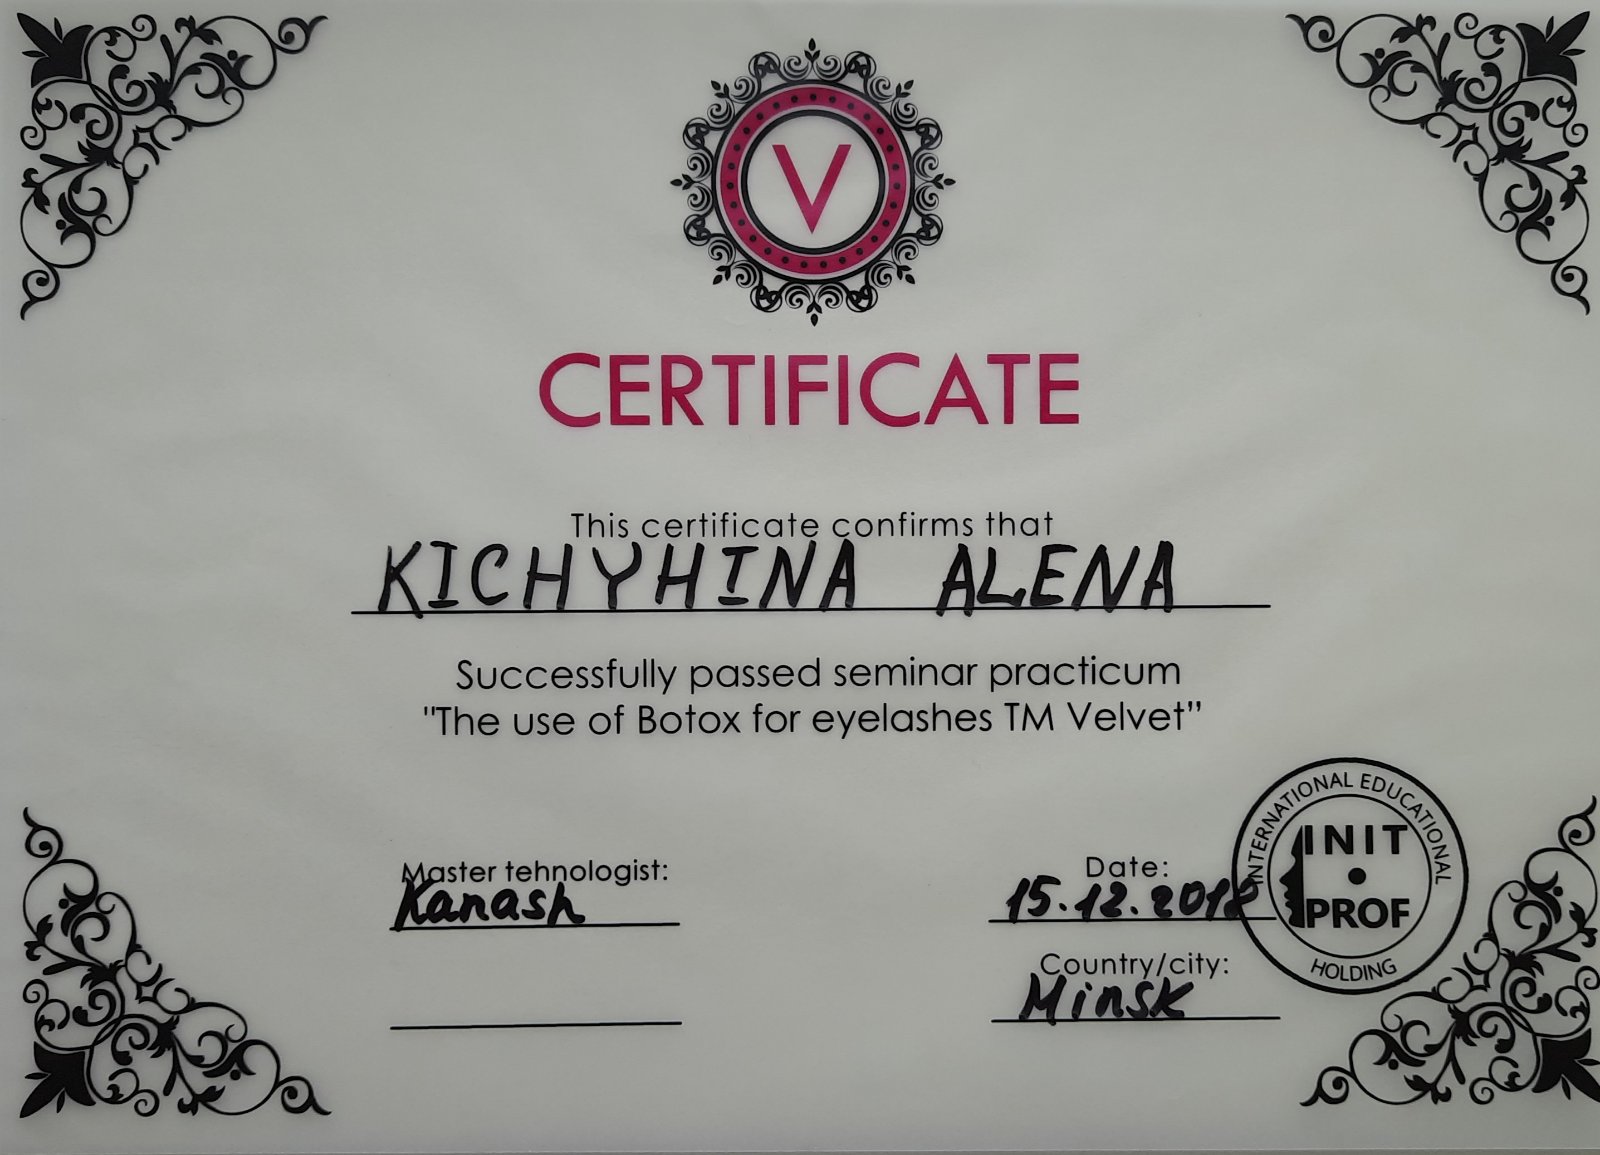 V
CERTIFICATE
This certificate confirms that
KICHYHINA ALENA
Successfully passed seminar practicum
"The use of Botox for eyelashes TM Velvet"
Master tehnologist:
Kanash
Date:
15.12.2018
Country/city:
Minsk
INTERNATIONAL EDUCATIONAL
INIT
PROF
HOLDING